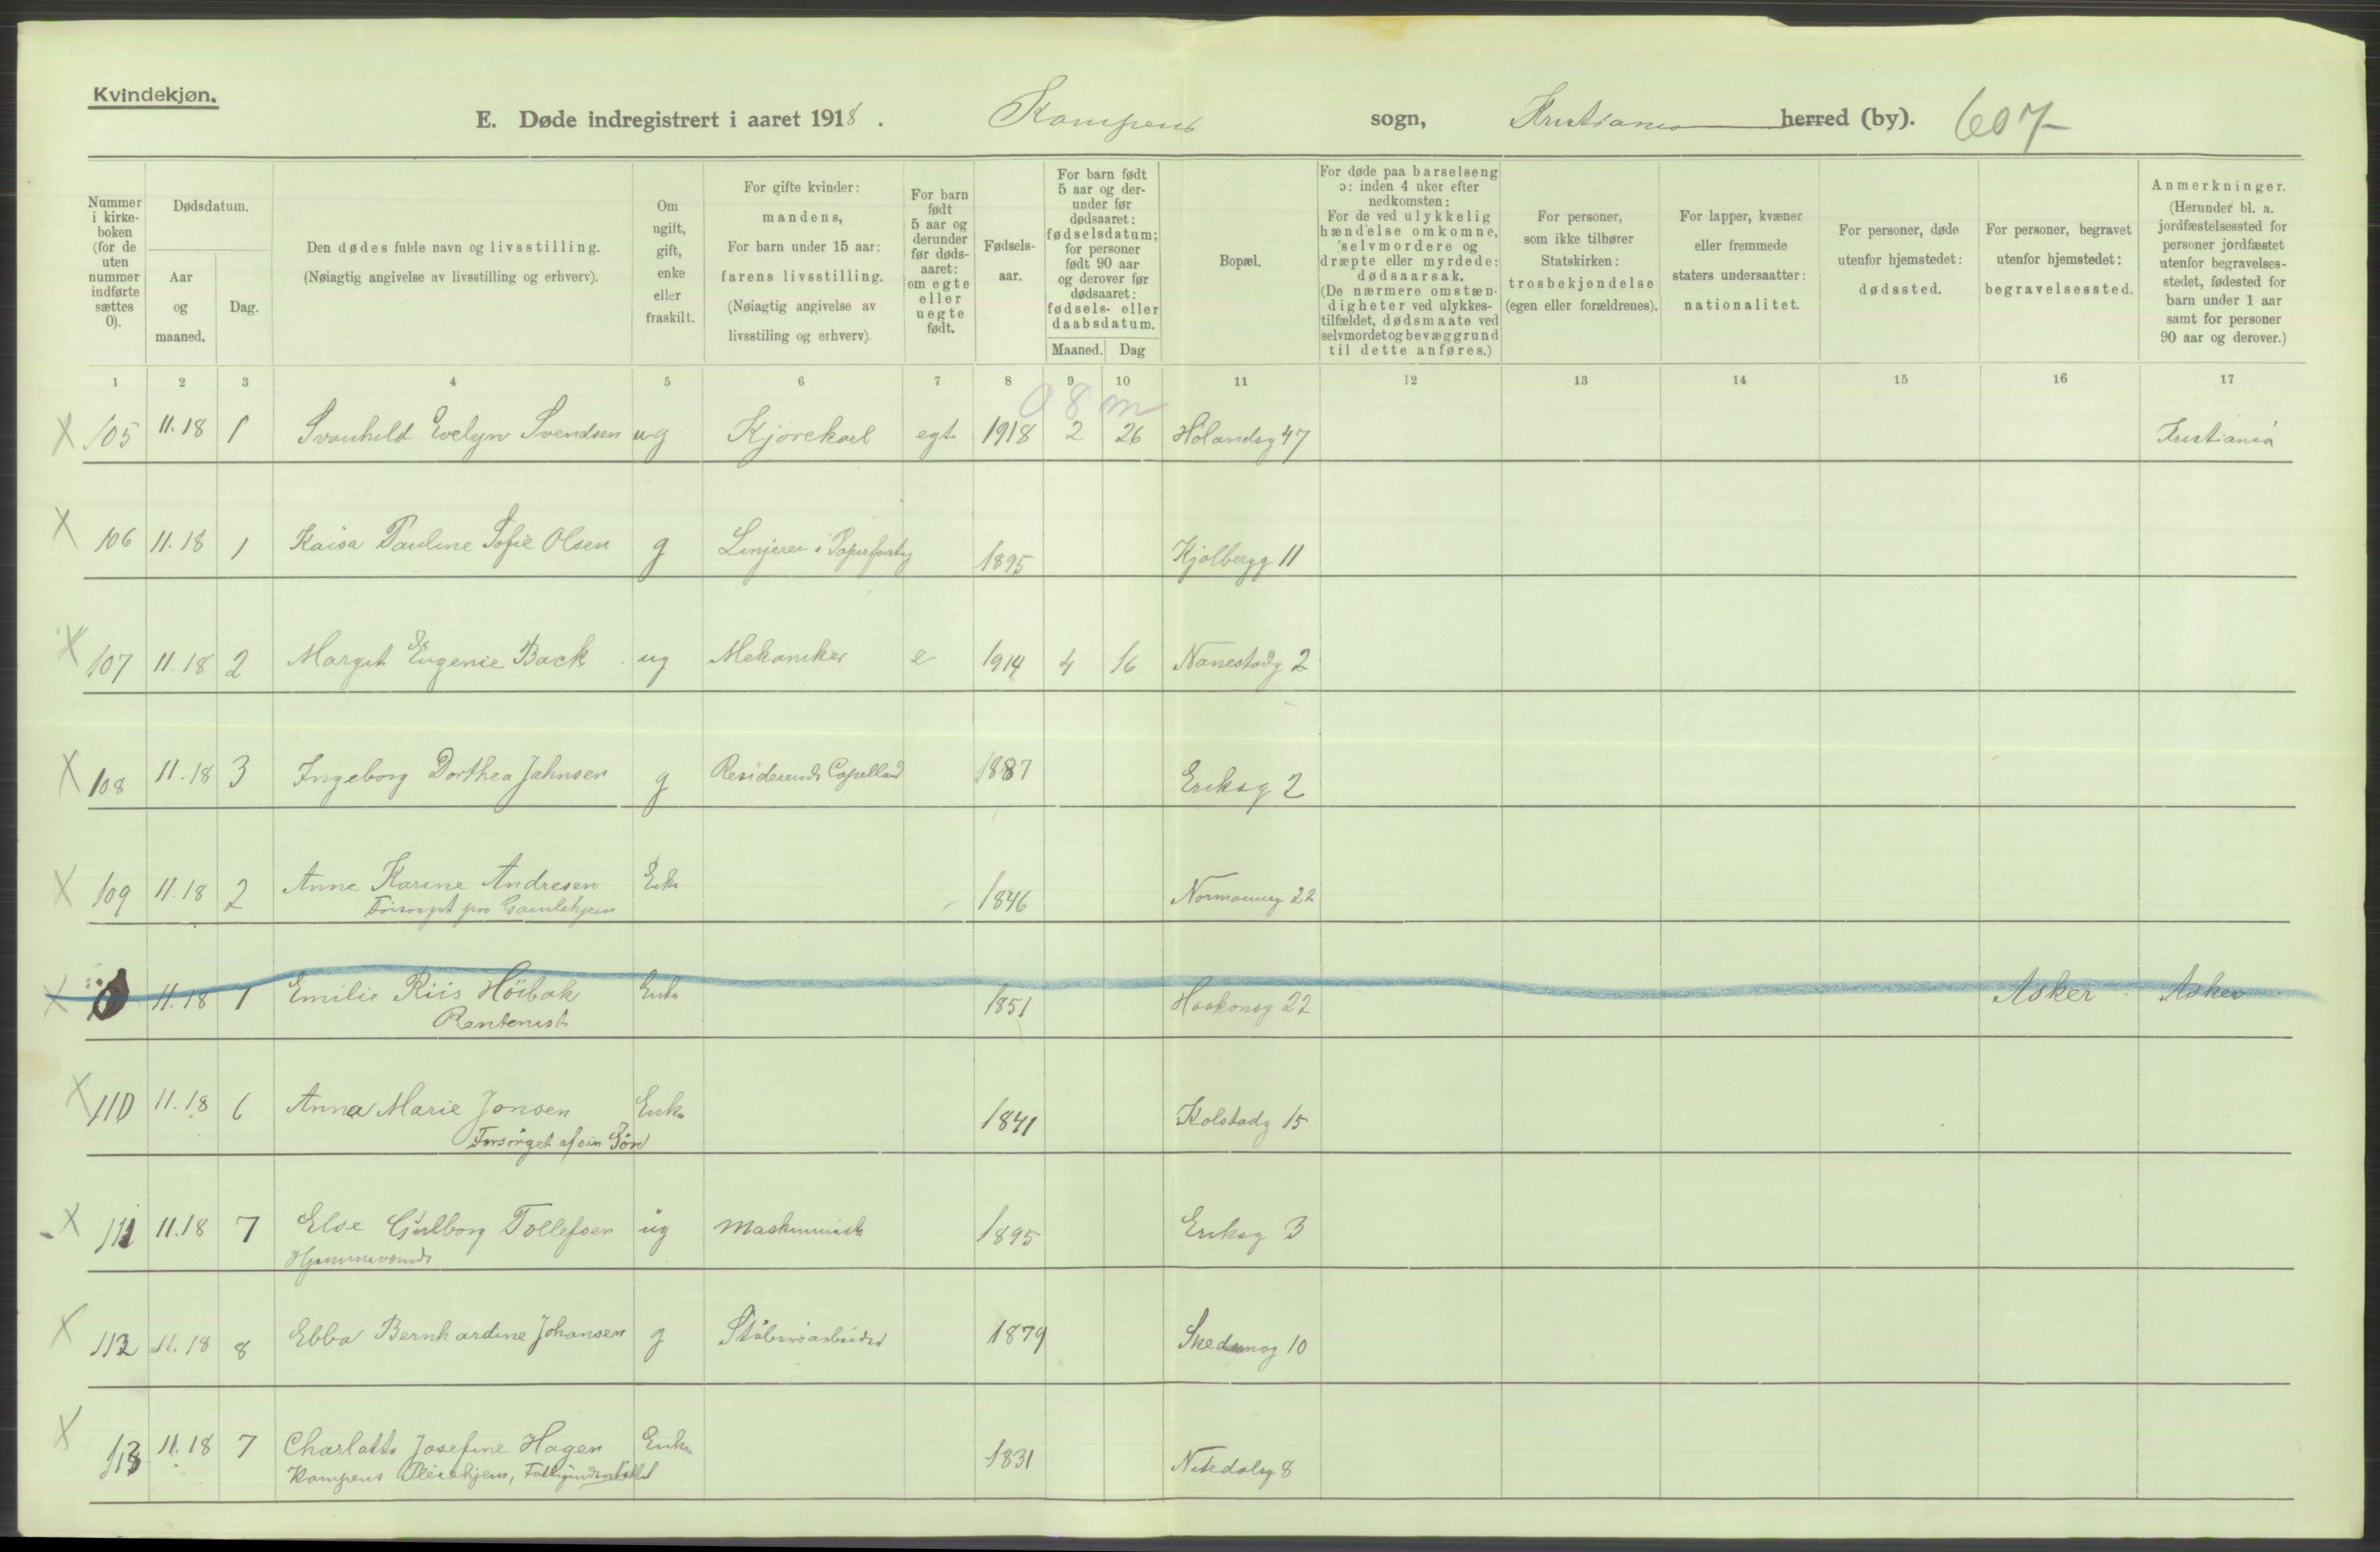 Kvindekjøn.
E. Døde indregistrert i aaret 1918. Kampens sogn, Kristiania herred (by). 607
Nummer i kirkeboken (for de uten nummer indførte sættes 0).
Dødsdatum.
Aar og maaned.
Dag.
Den dødes fulde navn og livsstilling.
(Nøiagtig angivelse av livsstilling og erhverv).
Om ugift, gift, enke eller fraskilt.
For gifte kvinder: mandens, For barn under 15 aar: farens livsstilling. (Nøiagtig angivelse av livsstiling og erhverv).
For barn født 5 aar og derunder før døds-aaret: om egte eller uegte født.
Fødsels-aar.
For barn født 5 aar og der-under før dødsaaret: fødselsdatum; for personer født 90 aar og derover før dødsaaret: fødsels- eller daabsdatum.
Maaned. Dag
Bopæl.
For døde paa barselseng ɔ: inden 4 uker efter nedkomsten: For de ved ulykkelig hændelse omkomne, selvmordere og dræpte eller myrdede: dødsaarsak. (De nærmere omstæn-digheter ved ulykkes-tilfældet, dødsmaate ved selvmordet og bevæggrund til dette anføres.)
For personer, som ikke tilhører Statskirken: trosbekjendelse (egen eller forældrenes).
For lapper, kvæner eller fremmede staters undersaatter: nationalitet.
For personer, døde utenfor hjemstedet: dødssted.
For personer, begravet utenfor hjemstedet: begravelsessted.
Anmerkninger. (Herunder bl. a. jordfæstelsessted for personer jordfæstet utenfor begravelses-stedet, fødested for barn under 1 aar samt for personer 90 aar og derover.)
1 2 3 4 5 6 7 8 9 10 11 12 13 14 15 16 17
0 8 m
X 105 11.18 1 Svanhild Evelyn Svendsen ug Kjørekarl egte 1918 2 26 Hølandsg 47 Kristiania
X 106 11.18 1 Kaisa Pauline Sofie Olsen g Linjerer i 1895 Kjølbergg 11
X 107 11.18 2 Margit Eugenie Back ug Mekaniker e 1914 4 16 Nanestadg 2
X 108 11.18 3 Ingeborg Dorthea Jahnsen g Residerende Capelland 1887 Eriksg 2
X 109 11.18 2 Anne Karine Andresen Enke 1846 Normannsg 22
Forsørget paa Gamlehjem
X 0 11.18 1 Emilie Riis Höibak Enke 1851 Haakonsg 22 Asker Asker
Rentenist
X 110 11.18 6 Anna Marie Jonsen Enke 1841 Kolstadg 15
Forsörget af sin Sön
X 111 11.18 7 Else Gulborg Tollefsen ug Maskinist 1895 Eriksg 3
Hjemmeværende
X 112 11.18 8 Ebba Bernhardine Johansen g 1879 Skedsmog 10
X 113 11.18 7 Charlotte Josefine Hagen Enke 1831 Nitedalsg 8
Kampens Pleiehjem,